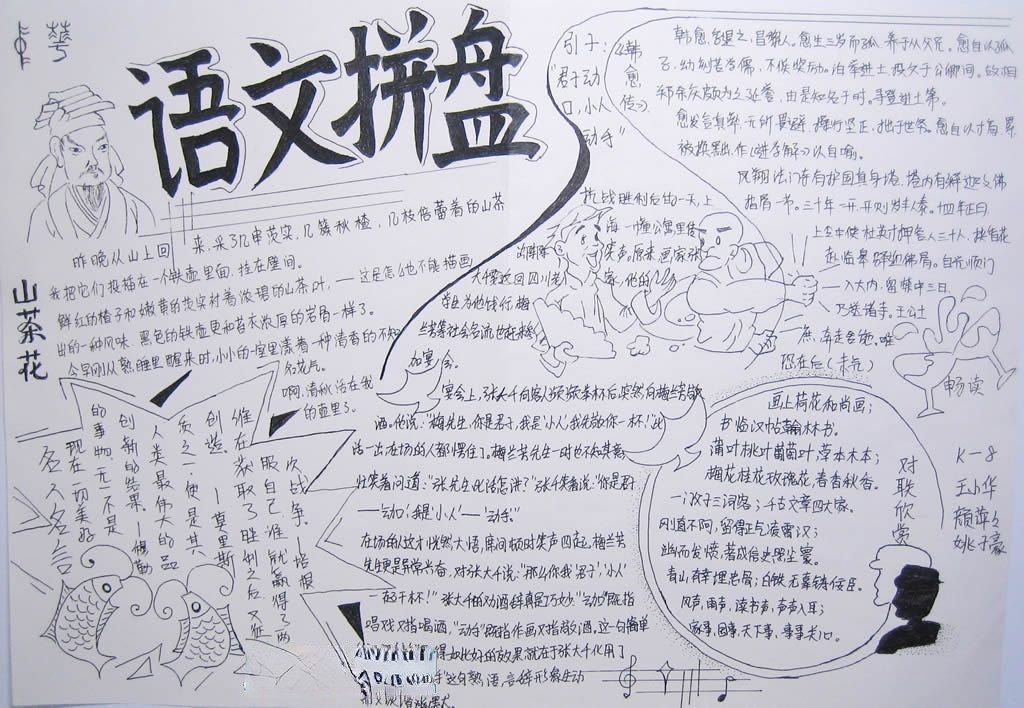 语文拼盘
山茶花
昨晚从山上回来,采了几串茨实,几簇秋楂,几枝倍蕾着的山茶
我把它们投插在一个铁壶里面,挂在壁间。
鲜红的楂子和嫩黄的茨实衬着浓碧的山茶叶,——这是怎么也不能描画
出的一种风味。黑色的铁壶更和苔衣深厚的岩骨一样了。
今早刚从熟睡里醒来时,小小的室里漾着一种清香的不知
名花气。
啊,清秋活在我
的壶里了。
引子:
“君子动
口,小人
动手”
《韩
愈
传》
韩愈,字退之,昌黎人。愈生三岁而孤,养于从父兄。愈自以孤
子,幼刻苦学儒,不俟奖励。洎举进士,投文于公卿间。故相
郑余庆颇为之延誉,由是知名于时。寻登进士第。
愈发言真率,无所畏避,操行坚正,拙于世务。愈自以才高,累
被摈黜,作《进学解》以自喻。
凤翔法门寺有护国真身塔,塔内有释迦文佛
指骨一节。三十年一开,开则岁丰人泰。十四年正月
上令中使杜英奇押宫人三十人,持香花
赴临皋驿迎佛骨。自光顺门
入大内,留禁中三日,
乃送诸寺。王公士
恐在后(未完)
畅读
抗战胜利后的一天,上
海一幢公寓里传
笑声,原来画家张
大千要返回四川老
家,他的
学生为他饯行,梅
兰芳等社会名流也赶来
加宴会。
宴会上,张大千向客人
酒,他说:“梅先生,你是君子,我是小人,我先敬你一杯!”此
话一出,在场的人都愣住了。梅兰芳先生一时也不知其意,
忙笑着问道:“张先生此话怎讲?”张大千笑着说:“你是君子
——动口,我是‘小人’——动手。”
在场的人这才恍然大悟,席间顿时笑声四起,梅兰芳
先生更是异常兴奋,对张大千说:“那么你我‘君子’、‘小人’
一起干杯!”张大千的劝酒辞真是巧妙。“动口”既指
唱戏又指喝酒,“动手”既指作画又指敬酒。这句简单
得如此好的效果,就在于张大千化用了
这句熟语,言辞形象生动
名人名言
现在一切美好
的事物,无一不是
创新的结果。——穆勒
人类最伟大的品
质之一便是其
创造。——莫里斯
维在获取了胜利之后,又征
服自己,谁就赢得了两
次战争。——培根
对联欣赏
画上荷花和尚画;
书临汉帖翰林书。
蒲叶桃叶葡萄叶,草本木本;
梅花桂花玫瑰花,春香秋香。
一门父子三词客;千古文章四大家。
刚直不阿,留得正气凌霄汉;
幽而发愤,著成信史照尘寰。
青山有幸埋忠骨;白铁无辜铸佞臣。
风声,雨声,读书声,声声入耳;
家事,国事,天下事,事事关心。
K-8
王小华
颜萍
姚子豪